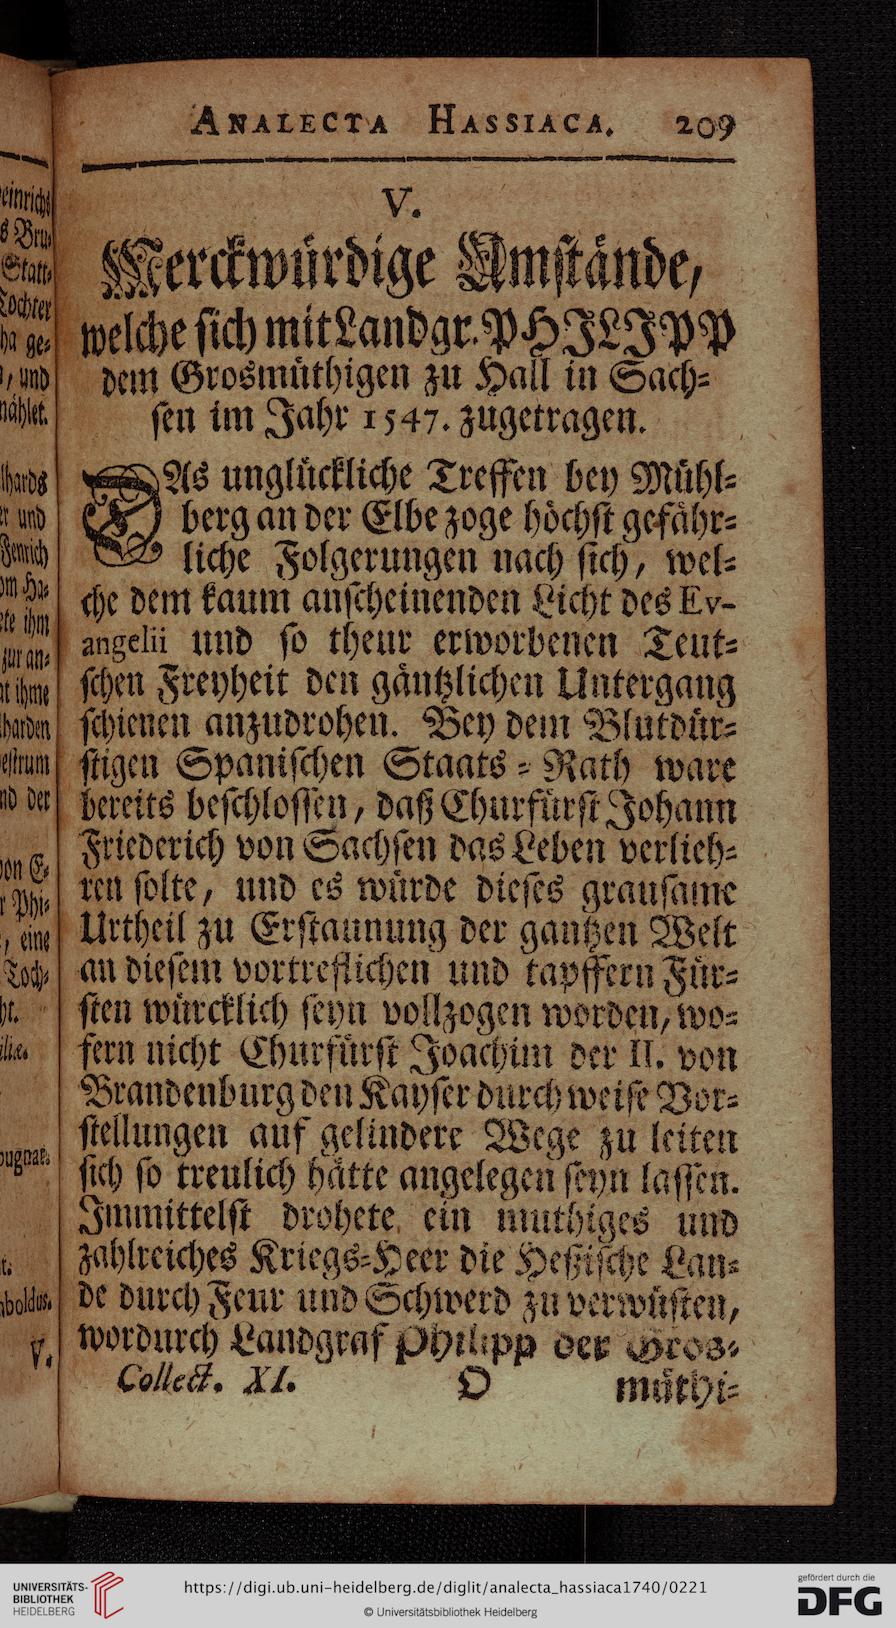 ANALECTA HASSIACA. 209
V.
Merckwürdige Umstände,
welche sich mit Landgr. PHILIPP
dem Grosmüthigen zu Hall in Sach=
sen im Jahr 1547. zugetragen.
DAs unglückliche Treffen bey Mühl=
berg an der Elbe zoge höchst gefähr=
liche Folgerungen nach sich, wel=
che dem kaum anscheinenden Licht des Ev-
angelii und so theur erworbenen Teut=
schen Freyheit den gäntzlichen Untergang
schienen anzudrohen. Bey dem Blutdür=
stigen Spanischen Staats = Rath ware
bereits beschlossen, daß Churfürst Johann
Friederich von Sachsen das Leben verlieh=
ren solte, und es würde dieses grausame
Urtheil zu Erstaunung der gantzen Welt
an diesem vortreflichen und tapffern Für=
sten würcklich seyn vollzogen worden, wo=
fern nicht Churfürst Joachim der II. von
Brandenburg den Kayser durch weise Vor=
stellungen auf gelindere Wege zu leiten
sich so treulich hätte angelegen seyn lassen.
Immittelst drohete ein muthiges und
zahlreiches Kriegs=Heer die Heßische Lan=
de durch Feur und Schwerd zu verwüsten,
wordurch Landgraf Philipp der Gros=
Collect. XI. O müthi=
einrichs
s Bru=
Statt=
Tochter
ha ge=
, und
nählet.
lhards
er und
Henrich
om Ha=
ete ihm
zur an=
at ihme
harden
estrum
nd der
von E=
r Phi=
, eine
Toch=
ht.
iliæ.
pugnat.
t.
boldus.
V.
UNIVERSITÄTS-
BIBLIOTHEK
HEIDELBERG
https://digi.ub.uni-heidelberg.de/diglit/analecta_hassiaca1740/0221
© Universitätsbibliothek Heidelberg
gefördert durch die
DFG